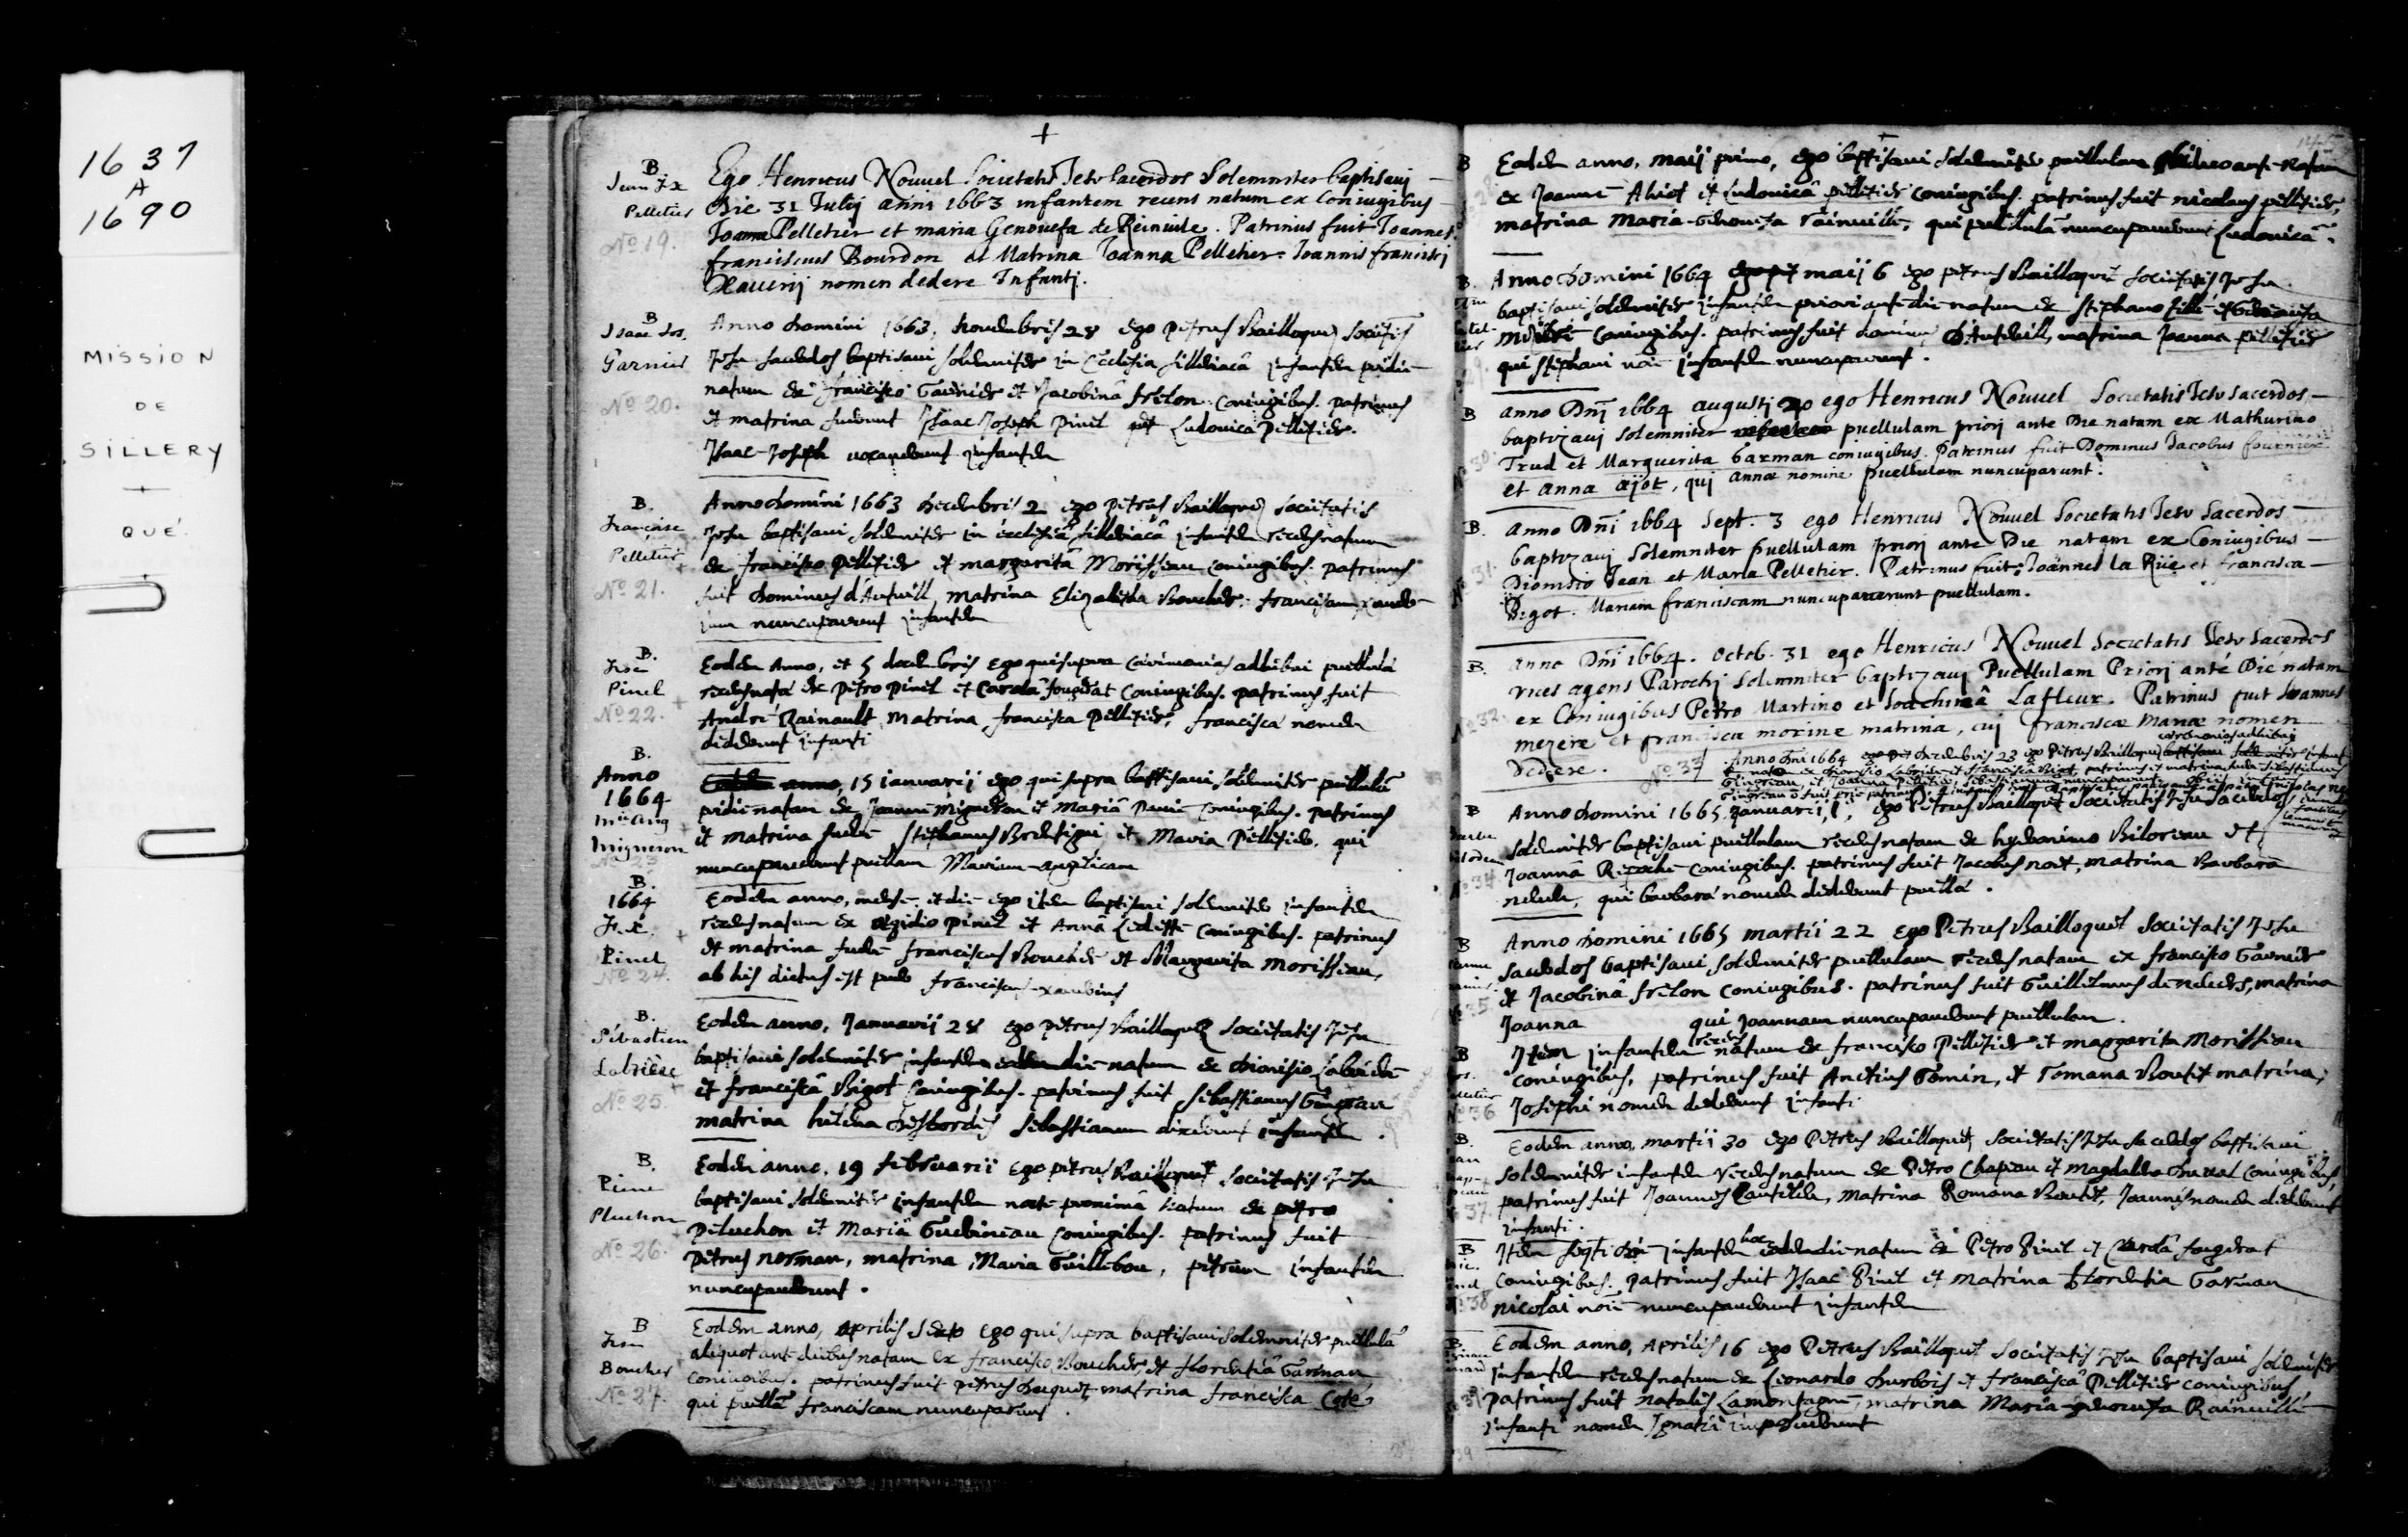 1637
A
1690
MISSION
DE
SILLERY
+
QUÉ.
+
B
Jean Fx
Pelletier
No 19.
Ego Henricus Nouuel Societatis Jesu Sacerdos Solemniter baptisaui
Die 31 Julij anni 1663 infantem recens natum ex Coniugibus
Joanne Pelletier et maria Genouefa de Reinuile. Patrinus fuit Joannes
franciscus Bourdon et Matrina Joanna Pelletier. Joannis francisci
Xauerij nomen dedere Infanti.
B
Isaac Jos.
Garnier
No 20.
Anno domini 1663, novembris 28 ego petrus Bailloquet societis
Jesu sacerdos baptisaui solemniter in Ecclesia silleriacâ infantem pridie
natum ex francisco Garnier et Jacobinâ frelon coniugibus. patrinus
et matrina fuerunt Isaac Joseph pinel et Ludovica Pelletier.
Isaac-Joseph vocauerunt infantem
B.
Françoise
Pelletier
No 21.
Anno domini 1663 decembris 2 ego petrus Bailloquet societatis
Jesu baptisaui solemniter in ecclesiâ silleriacâ infantem recens natum
ex francisco pelletier et margaritâ Morisseau coniugibus. patrinus
fuit dominus d'Auteuill, matrina Elizabetha Boucher.
nuncuparunt infantem
B.
Fse
Pinel
No 22.
Eodem Anno, et 5 decembris Ego qui supra cærimonias adhibui puellulæ
recens natæ ex petro pinel et Carola fougerat coniugibus. patrinus fuit
André Rainault, matrina francisca pelletier, franciscæ nomen
dederunt infanti
B.
Anno
1664
Mie Ang
Migneron
No 23
Eodem anno, 15 ianuarij ego qui supra baptisaui solemniter puellulā
pridie natam ex Joanne Migneron et Mariâ pauie coniugibus. patrinus
et matrina fuere Stephanus et Maria Pelletier, qui
nuncupauerunt puellam Mariam-angelicam
B.
1664
F. X.
Pinel
No 24.
Eodem anno, mense, et die ego item baptisaui solemniter infantem
recens natum ex ægidio pinel et Annâ Ledet coniugibus. patrinus
et matrina fuere franciscus Boucher et Margarita Morisseau,
ab his dictus est puer franciscus-xauerius
B.
Sébastien
Labrière
No 25.
Eodem anno, Januarij 28 ego petrus Bailloquet societatis Jesu
baptisaui solemniter infantem eadem die natum ex dionisio Labriere
et franciscâ Bigot coniugibus. patrinus fuit Sebastianus Gingrau
matrina helena desbordes sebastianum dixerunt infantem.
B.
Pierre
Pluchon
No 26.
Eodem anno, 19 februarii Ego petrus Bailloquet societatis Jesu
baptisaui solemniter infantem nocte proximâ natum ex petro
peluchon et Mariâ Guebineau coniugibus. patrinus fuit
petrus norman, matrina, Maria Guillebou, petrum infantem
nuncupauerunt.
B
Fse
Boucher
No 27.
Eodem anno, aprilis sexto Ego qui supra baptisaui solemniter puellulā
aliquot ante diebus natam ex francisco Boucher, et florentiâ Garman
coniugibus. patrinus fuit petrus duquet matrina francisca Coté
qui puellā franciscam nuncuparunt.
B
Eodem anno, maij primo, ego baptisaui solemniter puellulam natam
ex Joanne Aliot et Ludouicâ pelletier coniugibus. patrinus fuit nicolaus pelletier,
matrina Maria-genouefa rainuille, qui puellulā nuncupauerunt Ludouicā.
B.
Anno domini 1664 maij 6 ego petrus Bailloquet societatis Jesu
baptisaui solemniter infantem priori ante die natum ex stephano
coniugibus. patrinus fuit dominus d'Auteuill, matrina Joanna pelletier
qui stephani infantem nuncuparunt.
B
No 30.
anno Dni 1664 augusti 20 ego Henricus Nouuel Societatis Jesu Sacerdos
baptizaui Solemniter puellulam priori ante Die natam ex Mathurino
Trud et Marguerita Garman coniugibus. Patrinus fuit Dominus Jacobus fournier
et anna ajot, qui annæ nomine puellulam nuncuparunt.
B.
31.
anno Dni 1664 Sept. 3 ego Henricus Nouuel Societatis Jesu Sacerdos
baptizaui Solemniter puellulam priori ante Die natam ex Coniugibus
Dionisio Jean et Maria Pelletier. Patrinus fuit Joannes la Rüe et francisca
Bigot. Mariam franciscam nuncuparerunt puellulam.
B.
No 32.
anno Dni 1664. octob. 31 ego Henricus Nouuel Societatis Jesu Sacerdos
vices agens Parochi Solemniter baptizaui Puellulam Priori ante Die natam
ex Coniugibus Petro Martino et Joachimâ Lafleur. Patrinus fuit Joannes
mezere et francisca morine matrina, cui franciscæ Mariæ nomen
Dedere.
No 33
Anno Dni 1664 decembris 23 ego Petrus Bailloquet cæremonias adhibui
B
No 34
Anno domini 1665, januarii, 1, ego Petrus Bailloquet Societatis Jesu sacerdos
solemniter baptisaui puellulam recens natam ex hyeronimo Biloreau et
Joannâ coniugibus. patrinus fuit Jacobus, matrina Barbara
qui barbaræ nomen dederunt puellæ.
B
35
Anno domini 1665 martii 22 Ego Petrus Bailloquet societatis Jesu
sacerdos baptisaui solemniter puellulam recens natam ex francisco Garnier
et Jacobinâ frelon coniugibus. patrinus fuit Guillelmus, matrina
Joanna qui Joannam nuncupauerunt puellulam.
B
36
Item infantem recens natum ex francisco Pelletier et margarita Morisseau
coniugibus, patrinus fuit Gomin, et Romana Boutet matrina,
Josephi nomen dederunt infanti
B.
37.
Eodem anno, martii 30 ego Petrus Bailloquet, societatis Jesu sacerdos baptisaui
solemniter infantem recens natum ex Petro Chapeau et magdalena duual coniugibus,
patrinus fuit Joannes, matrina Romana Boutet, Joannis nomen dederunt
infanti.
B
No 38
Item infantem hac eadem die natum ex Petro Pinel et Carolâ fougerat
coniugibus. patrinus fuit Isaac Pinel et matrina florentia Garman
nicolai nomine nuncupauerunt infantem
B.
39
Eodem anno, Aprilis 16 ego Petrus Bailloquet societatis Jesu baptisaui solemniter
infantem recens natum ex Leonardo et franciscâ Pelletier coniugibus
patrinus fuit natalis Lamontagne, matrina Maria-genouefa Rainuille
infanti nomen Ignatii imposuerunt